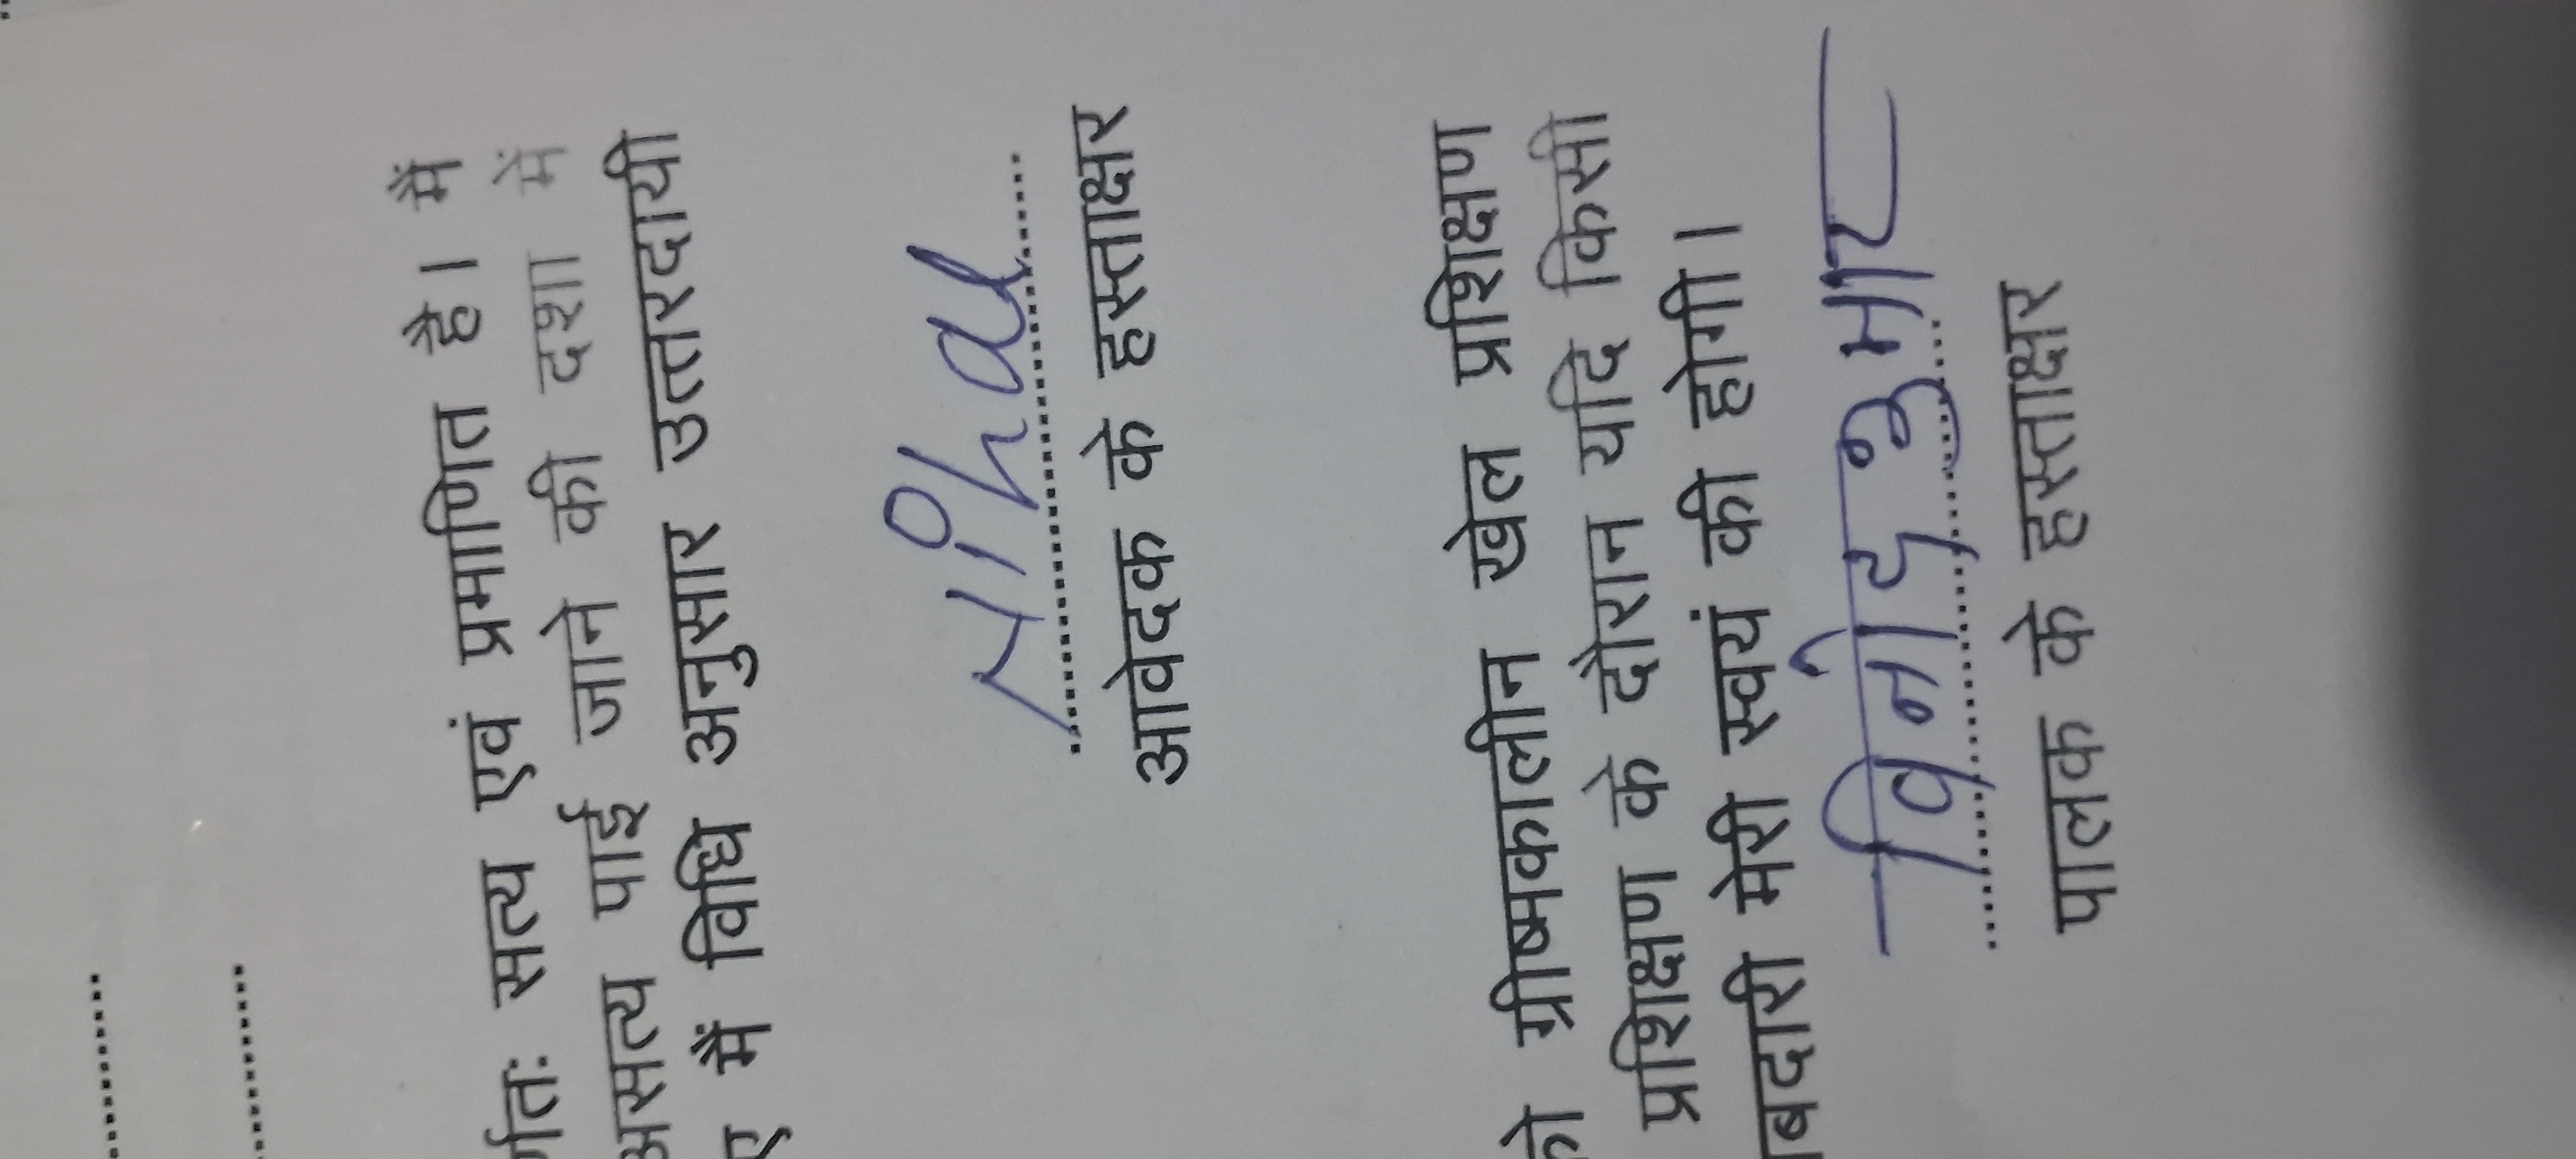 र्णतः सत्य एवं प्रमाणित है। मैं
असत्य पाई जाने की दशा में
ए मैं विधि अनुसार उत्तरदायी
Nihal
आवेदक के हस्ताक्षर
को ग्रीष्मकालीन खेल प्रशिक्षण
प्रशिक्षण के दौरान यदि किसी
बदारी मेरी स्वयं की होगी।
विनोद कुमार
पालक के हस्ताक्षर